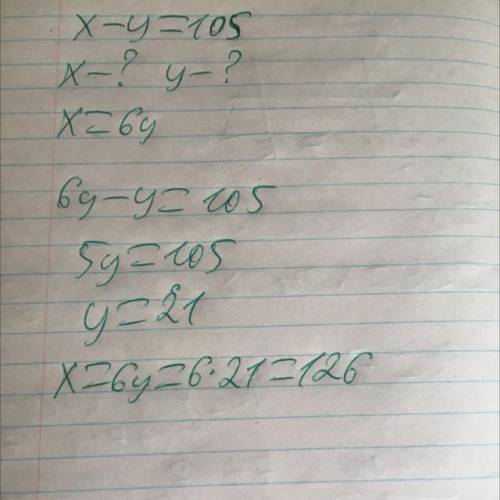 x-y=105
x-? y-?
x=6y
6y-y=105
5y=105
y=21
x=6y=6·21=126